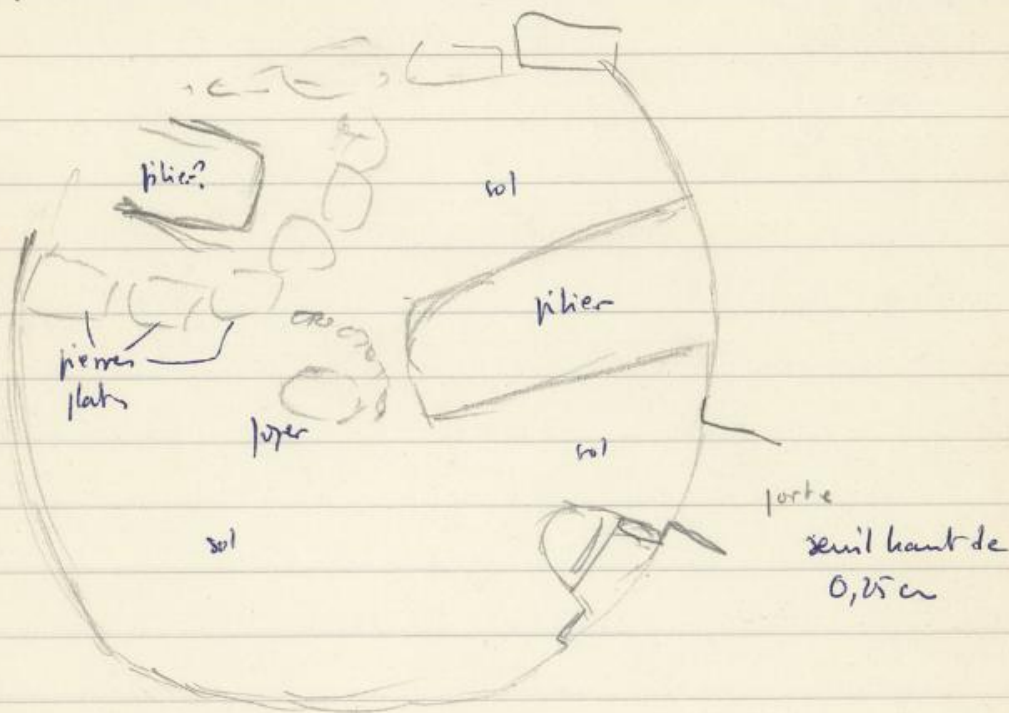 pilier?
sol
pilier
pierres
plates
foyer
sol
sol
porte
seuil haut de
0,25 cm